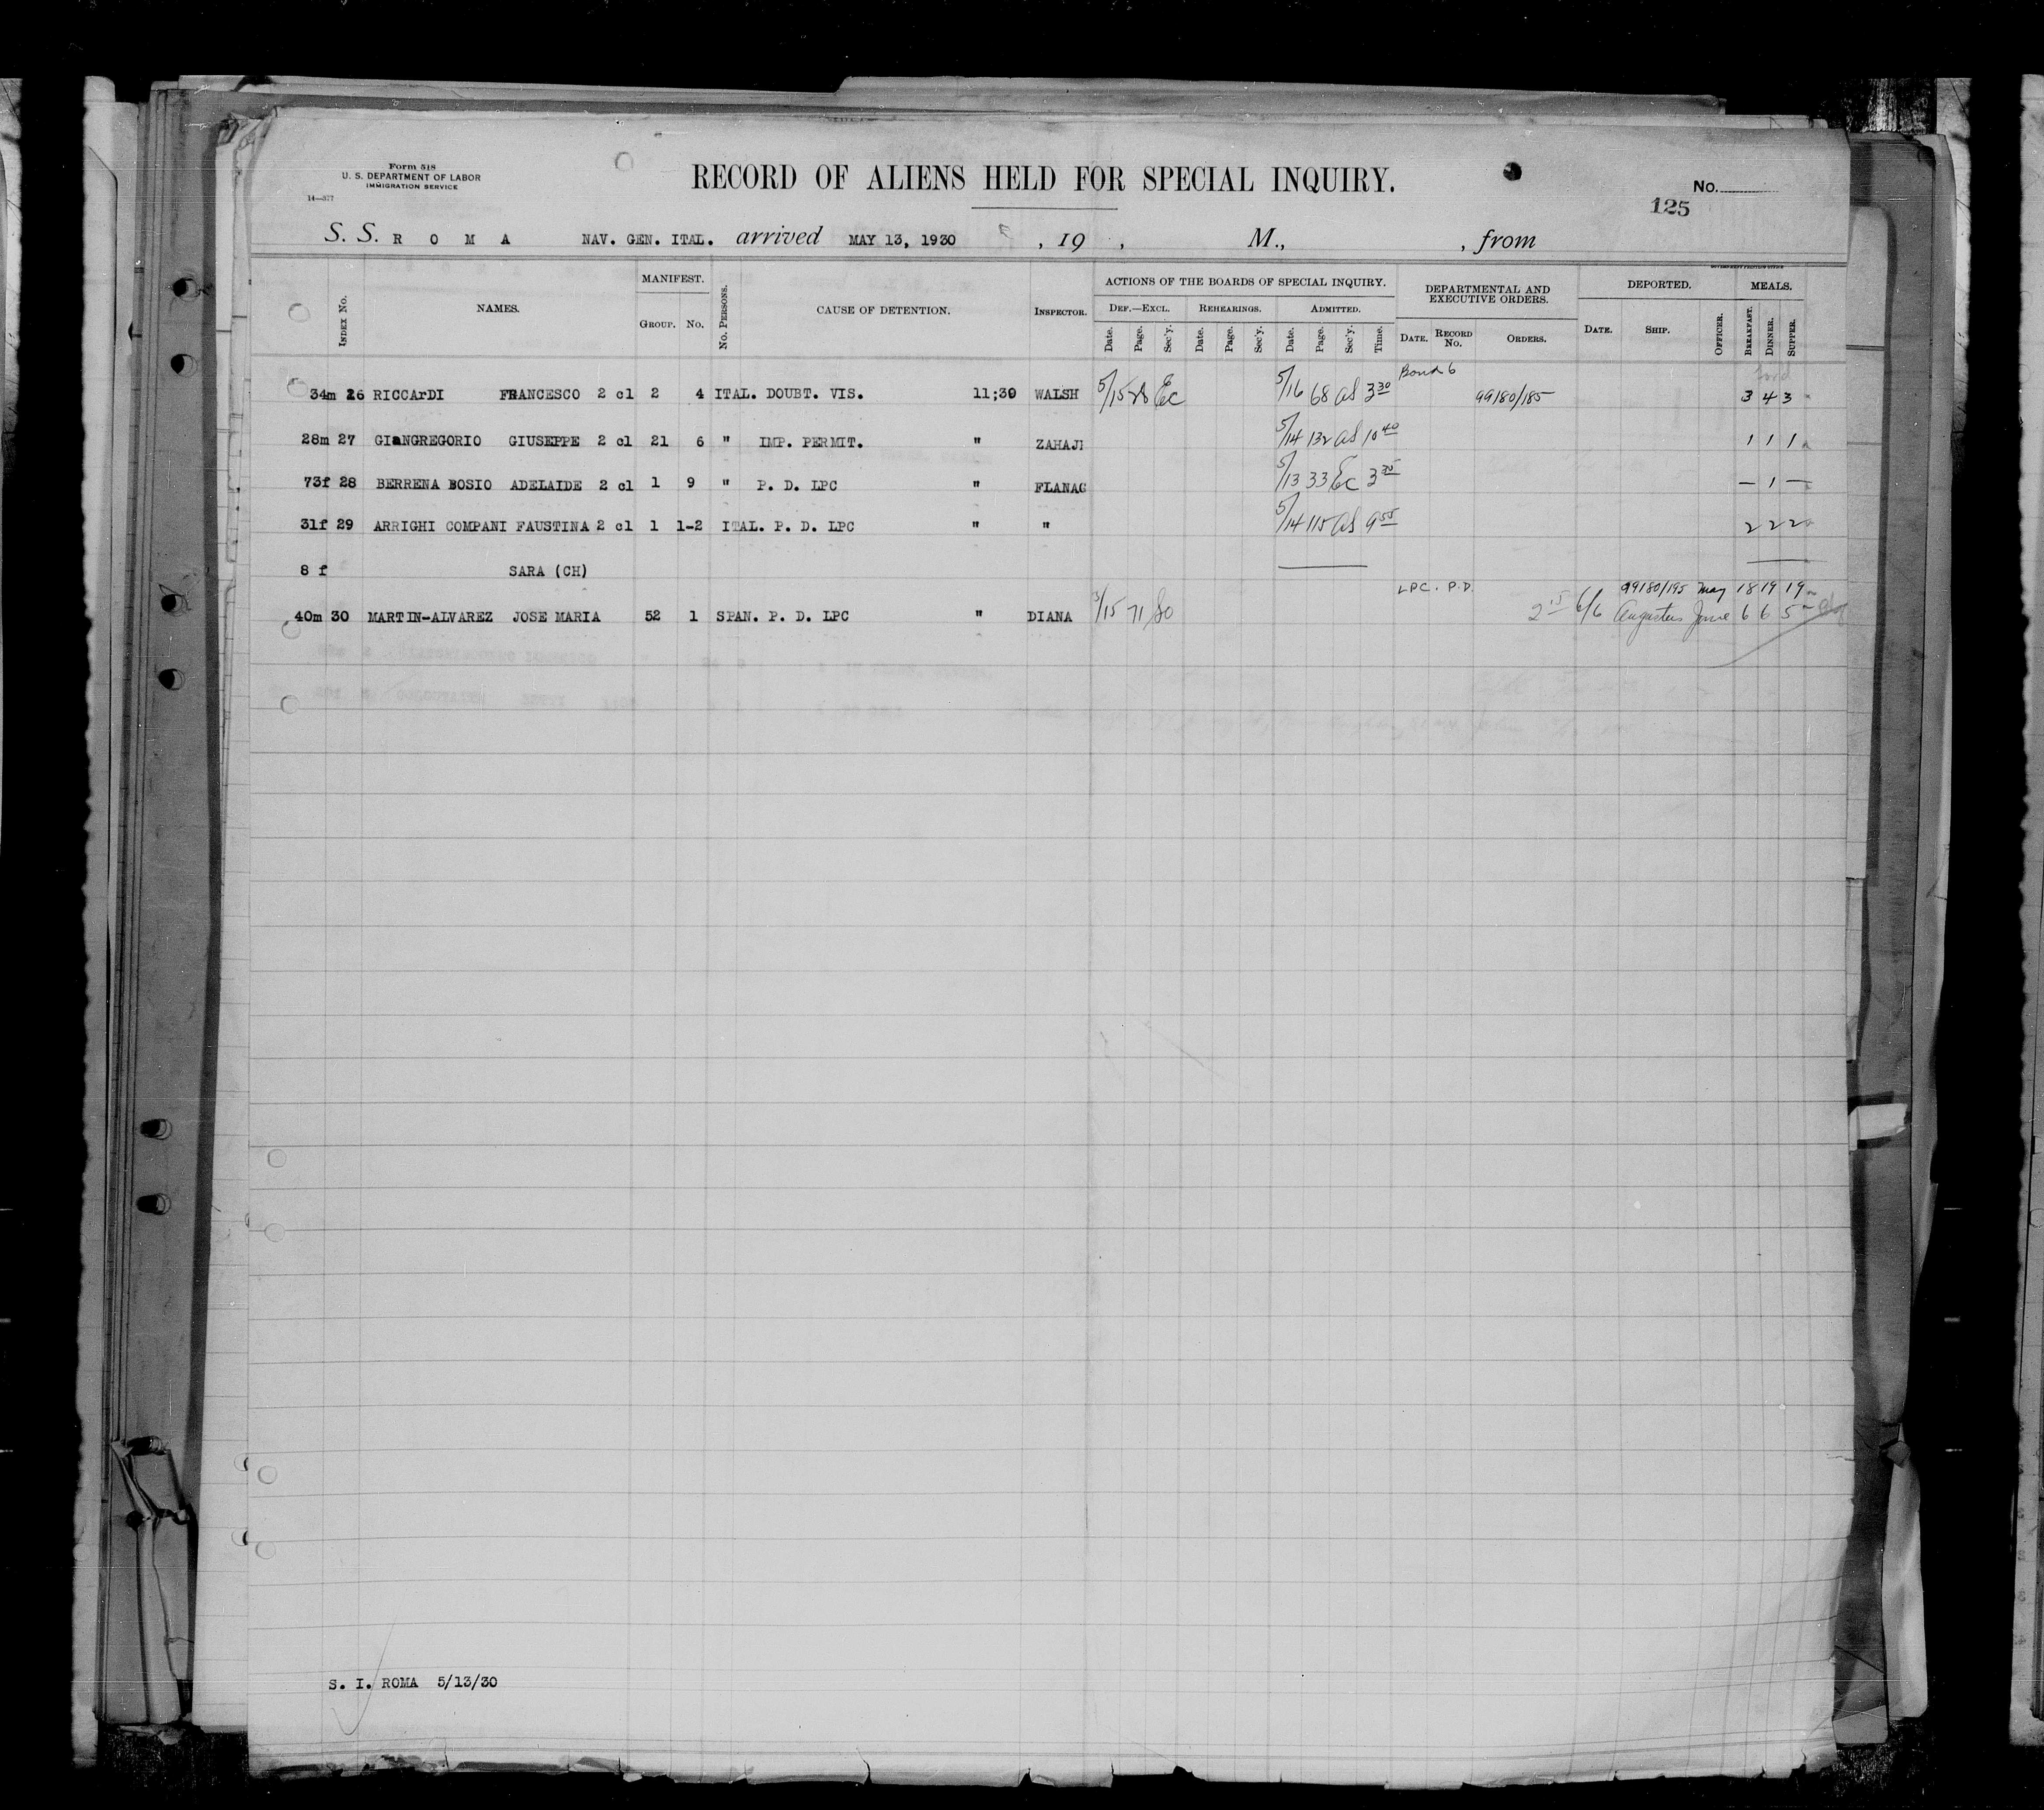 Form 518
U. S. DEPARTMENT OF LABOR
IMMIGRATION SERVICE
14—377
RECORD OF ALIENS HELD FOR SPECIAL INQUIRY.
No.
125
S. S. R O M A NAV. GEN. ITAL. arrived MAY 13, 1930 , 19 , M., , from
Index No. NAMES. MANIFEST. Group. No. No. Persons. CAUSE OF DETENTION. Inspector. ACTIONS OF THE BOARDS OF SPECIAL INQUIRY. Def.—Excl. Date. Page. Sec'y. Rehearings. Date. Page. Sec'y. Admitted. Date. Page. Sec'y. Time. DEPARTMENTAL AND EXECUTIVE ORDERS. Date. Record No. Orders. DEPORTED. Date. Ship. Officer. MEALS. Breakfast. Dinner. Supper.
Bond 6
34m 26 RICCArDI FRANCESCO 2 cl 2 4 ITAL. DOUBT. VIS. 11;30 WALSH 5/15 28 Ec 5/16 68 as 3 30 99180/185 3 4 3
28m 27 GIaNGREGORIO GIUSEPPE 2 cl 21 6 " IMP. PERMIT. " ZAHAJI 5/14 132 as 10 40 1 1 1
73f 28 BERRENA BOSIO ADELAIDE 2 cl 1 9 " P. D. LPC " FLANAG 5/13 33 Ec 3 35 — 1 —
31f 29 ARRIGHI COMPANI FAUSTINA 2 cl 1 1-2 ITAL. P. D. LPC " " 5/14 115 as 9 55 2 2 2
8 f SARA (CH)
LPC. P.D. 99180/195 May 18 19 19
40m 30 MARTIN-ALVAREZ JOSE MARIA 52 1 SPAN. P. D. LPC " DIANA 5/15 71 2 15 6/6 Augustus June 6 6 5
S. I. ROMA 5/13/30